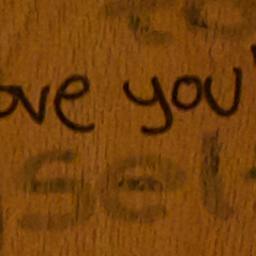 ove you
self